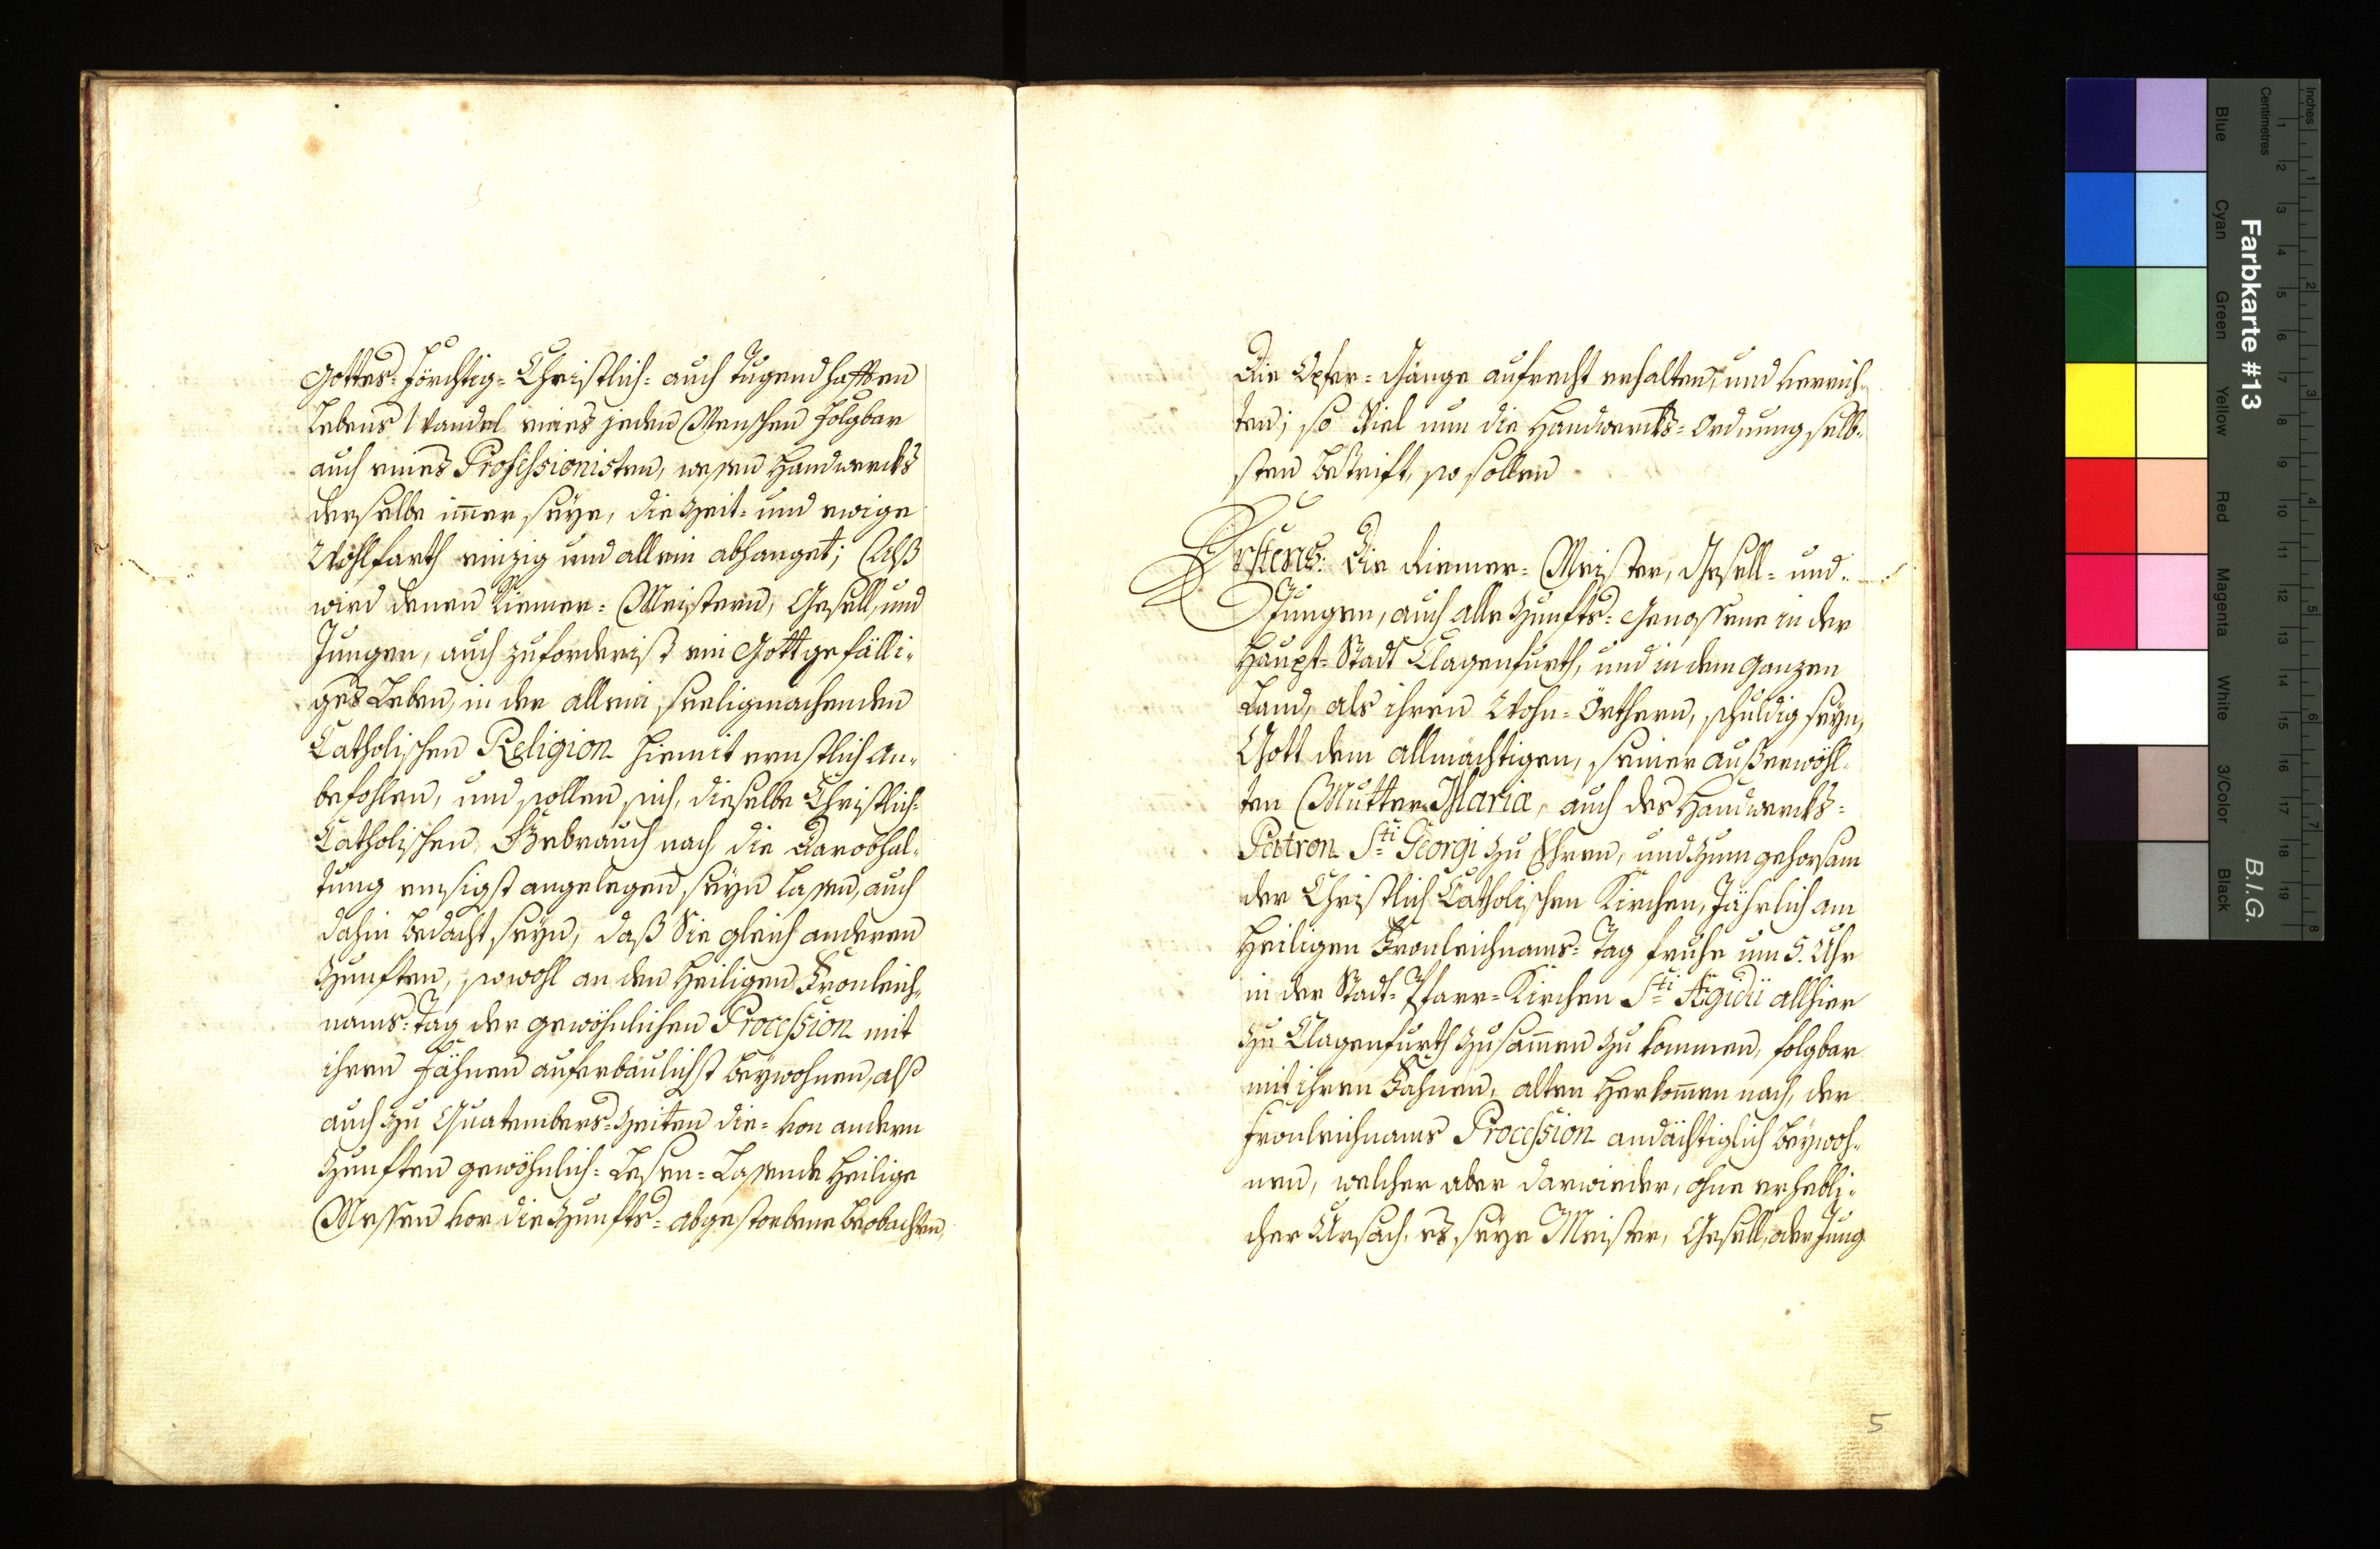 Gottes-förchtig- Christlich- auch Tugendhafften
Lebens Wandel eines jeden Menschen folgbar
auch eines Professionisten, wessen Handwercks
derselbe im̅er seye, die Zeit- und ewige
Wohlfarth einzig und allein abhanget; Alß
wird denen Riemer-Meistern, Gesell, und
Jungen, auch zuforderist ein Gott gefälli-
ges Leben, in der allein seeligmachenden
Catholischen Religion hiemit ernstlich an-
befohlen, und sollen sich, dieselbe Christlich-
Catholischen Gebrauch nach, die Darobhal-
tung emsigst angelegen seyn lassen, auch
dahin bedacht seyn, daß Sie gleich anderen
Zunften, sowohl an den Heiligen Fronleich-
nams-Tag der gewöhnlichen Procession mit
ihren Fähnen auferbäulichst beywohnen, alß
auch zu Quatembers-Zeiten die- von andern
Zunften gewöhnlich-Lesen-Lassende Heilige
Messen vor die Zunfts-abgestorbene beobachten,
Die Opfer-Gänge aufrecht erhalten, und verrich-
ten; so Viel nun die Handwercks-Ordnung selb-
sten betrift, so sollen
Erstens: Die Riemer-Meister, Gesell- und
Jungen, auch alle Zunfts-Genossene in der
Haupt-Stadt Clagenfurth, und in dem ganzen
Land, als ihren Wohn-Örthern, schuldig seyn,
Gott dem allmächtigen, seiner außerwöhl-
ten Mutter Maria, auch des Handwercks-
Patron Sti Georgi zu Ehren, und zum gehorsam
der Christlich Catholischen Kirchen, Jährlich am
Heiligen Fronleichnams-Tag fruhe um 5. Uhr
in der Stadt-Pfarr-Kirchen Sti Ægidii allhier
zu Clagenfurth zusam̅en zu kommen, folgbar
mit ihren Fahnen, alten Herkom̅en nach, der
Fronleichnams Procession andächtiglich beywoh-
nen, welcher aber darwieder, ohne erhebli-
cher Ursach, es seye Meister, Gesell, oder Jung
5
Inches
Centimetres
Farbkarte #13
B.I.G.
Blue
Cyan
Green
Yellow
Red
Magenta
White
3/Color
Black
1 2 3 4 5 6 7 8 9 10 11 12 13 14 15 16 17 18 19
1 2 3 4 5 6 7 8